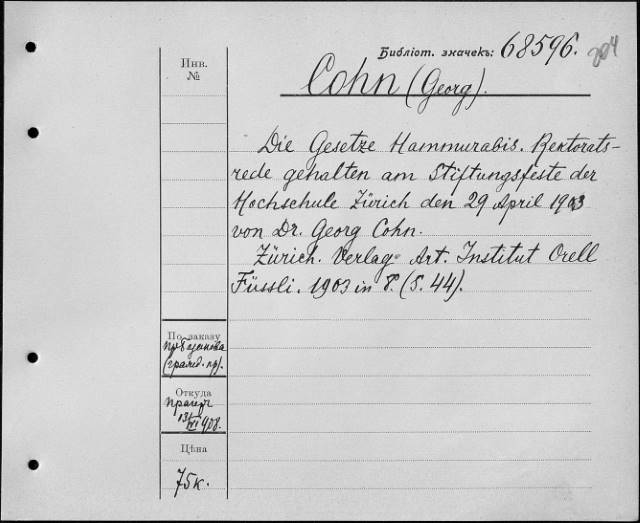 Библіот. значекъ: 68596. 204
Инв.
№
Cohn (Georg).
Die Gesetze Hammurabis. Rektorats-
rede gehalten am Stiftungsfeste der
Hochschule Zürich den 29 April 1903
von Dr. Georg Cohn.
Zürich. Verlag Art. Institut Orell
Füssli. 1903 in 8. (S. 44).
По заказу
(гражд. пр).
Откуда
13/VI 1908.
Цѣна
75к.